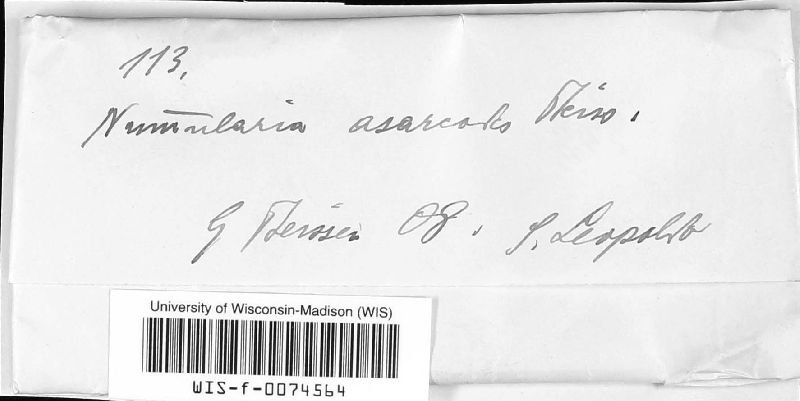 113.
Nummularia asarcodes Theiss.
G Theissen 08. S. Leopoldo
University of Wisconsin-Madison (WIS)
WIS-f-0074564